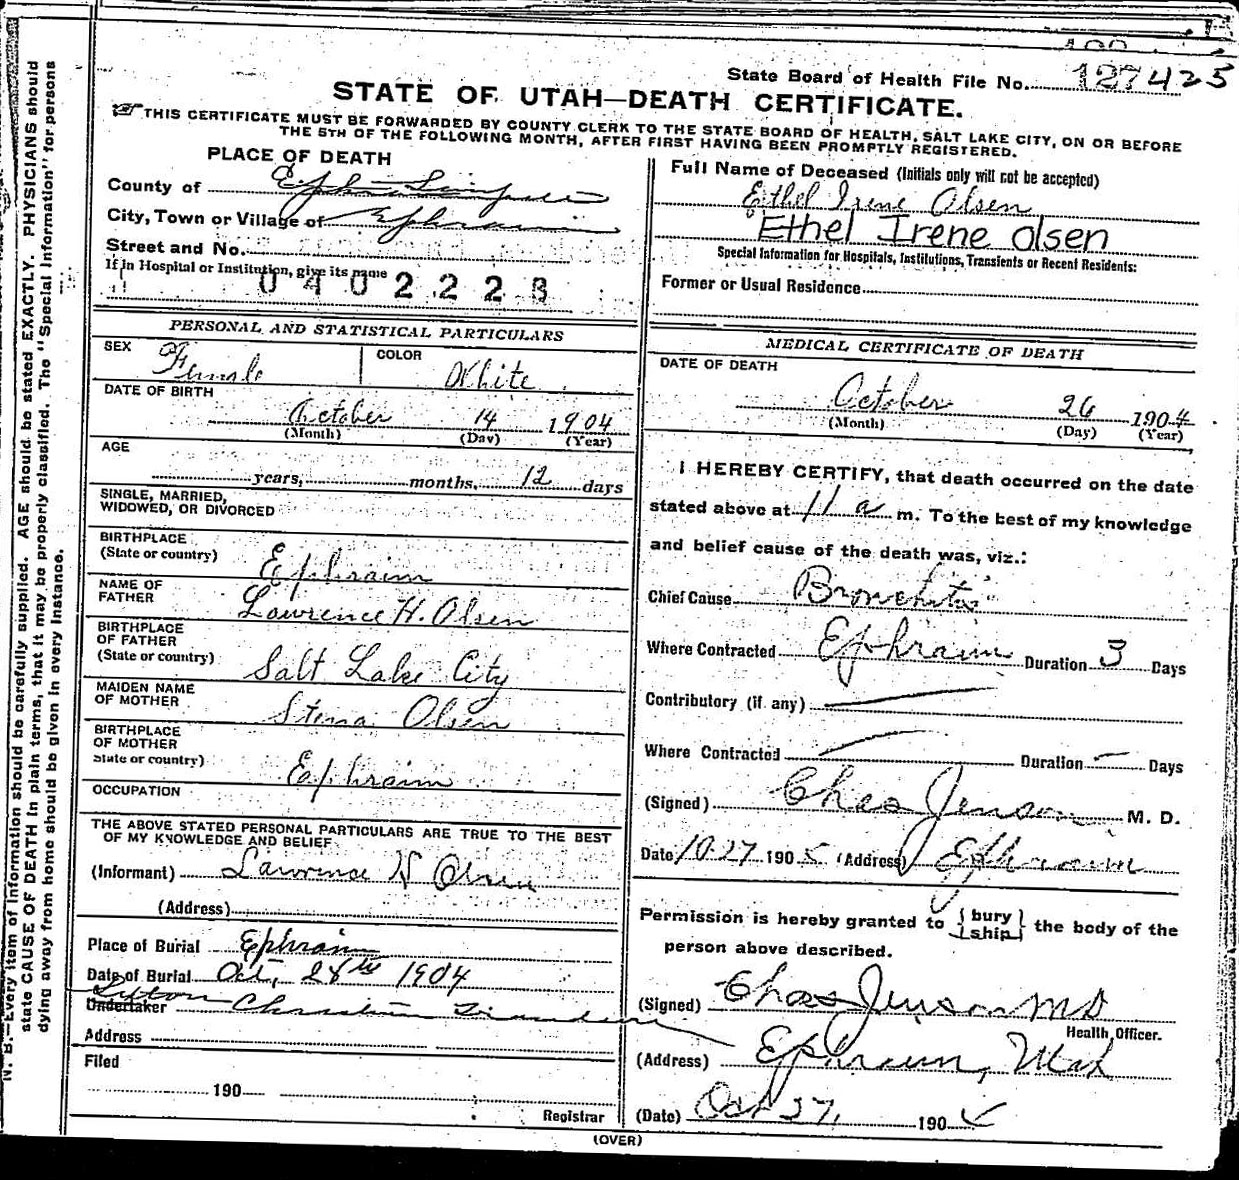 State Board of Health File No. 127425
STATE OF UTAH—DEATH CERTIFICATE.
THIS CERTIFICATE MUST BE FORWARDED BY COUNTY CLERK TO THE STATE BOARD OF HEALTH, SALT LAKE CITY, ON OR BEFORE
THE 5TH OF THE FOLLOWING MONTH, AFTER FIRST HAVING BEEN PROMPTLY REGISTERED.
PLACE OF DEATH
County of
City, Town or Village of Ephraim
Street and No.
If in Hospital or Institution, give its name
0402223
Full Name of Deceased (Initials only will not be accepted)
Ethel Irene Olsen
Ethel Irene Olsen
Special Information for Hospitals, Institutions, Transients or Recent Residents:
Former or Usual Residence
PERSONAL AND STATISTICAL PARTICULARS
SEX Female COLOR White
DATE OF BIRTH
October 14 1904
(Month) (Day) (Year)
AGE
years, months, 12 days
SINGLE, MARRIED,
WIDOWED, OR DIVORCED
BIRTHPLACE
(State or country) Ephraim
NAME OF
FATHER Lawrence H. Olsen
BIRTHPLACE
OF FATHER
(State or country) Salt Lake City
MAIDEN NAME
OF MOTHER Stena Olsen
BIRTHPLACE
OF MOTHER
State or country) Ephraim
OCCUPATION
THE ABOVE STATED PERSONAL PARTICULARS ARE TRUE TO THE BEST
OF MY KNOWLEDGE AND BELIEF
(Informant) Lawrence H Olsen
(Address)
Place of Burial Ephraim
Date of Burial Oct, 28th 1904
Sexton
Undertaker Christian
Address
Filed
190
Registrar
MEDICAL CERTIFICATE OF DEATH
DATE OF DEATH
October 26 1904
(Month) (Day) (Year)
I HEREBY CERTIFY, that death occurred on the date
stated above at 11 a m. To the best of my knowledge
and belief cause of the death was, viz.:
Chief Cause Bronchitis
Where Contracted Ephraim Duration 3 Days
Contributory (if any)
Where Contracted Duration — Days
(Signed) Chas Jenson M. D.
Date 10 27 1905 (Address) Ephraim
Permission is hereby granted to { bury ship } the body of the
person above described.
(Signed) Chas Jenson MD
Health Officer.
(Address) Ephraim, Utah
(Date) Oct 27, 190
(OVER)
N. B.—Every item of information should be carefully supplied. AGE should be stated EXACTLY. PHYSICIANS should
state CAUSE OF DEATH in plain terms, that it may be properly classified. The "Special Information" for persons
dying away from home should be given in every instance.